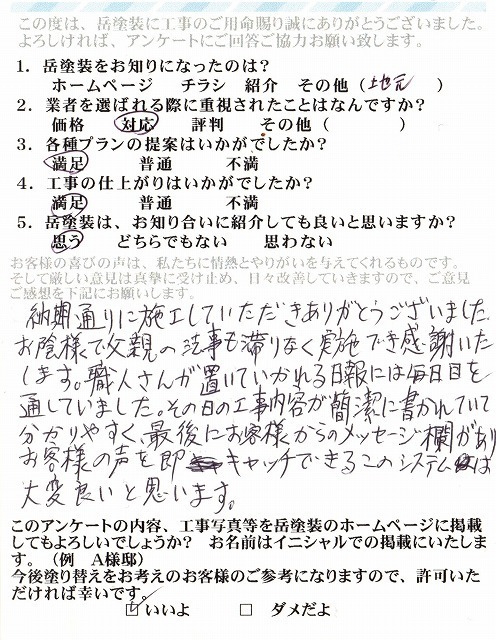 この度は、岳塗装に工事のご用命賜り誠にありがとうございました。
よろしければ、アンケートにご回答ご協力お願い致します。
1．岳塗装をお知りになったのは？
ホームページ　チラシ　紹介　その他（土地元　）
2．業者を選ばれる際に重視されたことはなんですか？
価格　対応　評判　その他（　　　）
3．各種プランの提案はいかがでしたか？
満足　普通　不満
4．工事の仕上がりはいかがでしたか？
満足　普通　不満
5．岳塗装は、お知り合いに紹介しても良いと思いますか？
思う　どちらでもない　思わない
お客様の喜びの声は、私たちに情熱とやりがいを与えてくれるものです。
そして厳しい意見は真摯に受け止め、日々改善していきますので、ご意見
ご感想を下記にお願いします。
納期通りに施工していただきありがとうございました。
お陰様で父親の法事も滞りなく実施でき感謝いた
します。職人さんが置いていかれる日報には毎日目を
通していました。その日の工事内容が簡潔に書かれていて
分かりやすく、最後にお客様からのメッセージ欄があり
お客様の声を即キャッチできるこのシステムは
大変良いと思います。
このアンケートの内容、工事写真等を岳塗装のホームページに掲載
してもよろしいでしょうか？　お名前はイニシャルでの掲載にいたしま
す。（例　A様邸）
今後塗り替えをお考えのお客様のご参考になりますので、許可いた
だければ幸いです。
☑ いいよ　□ ダメだよ